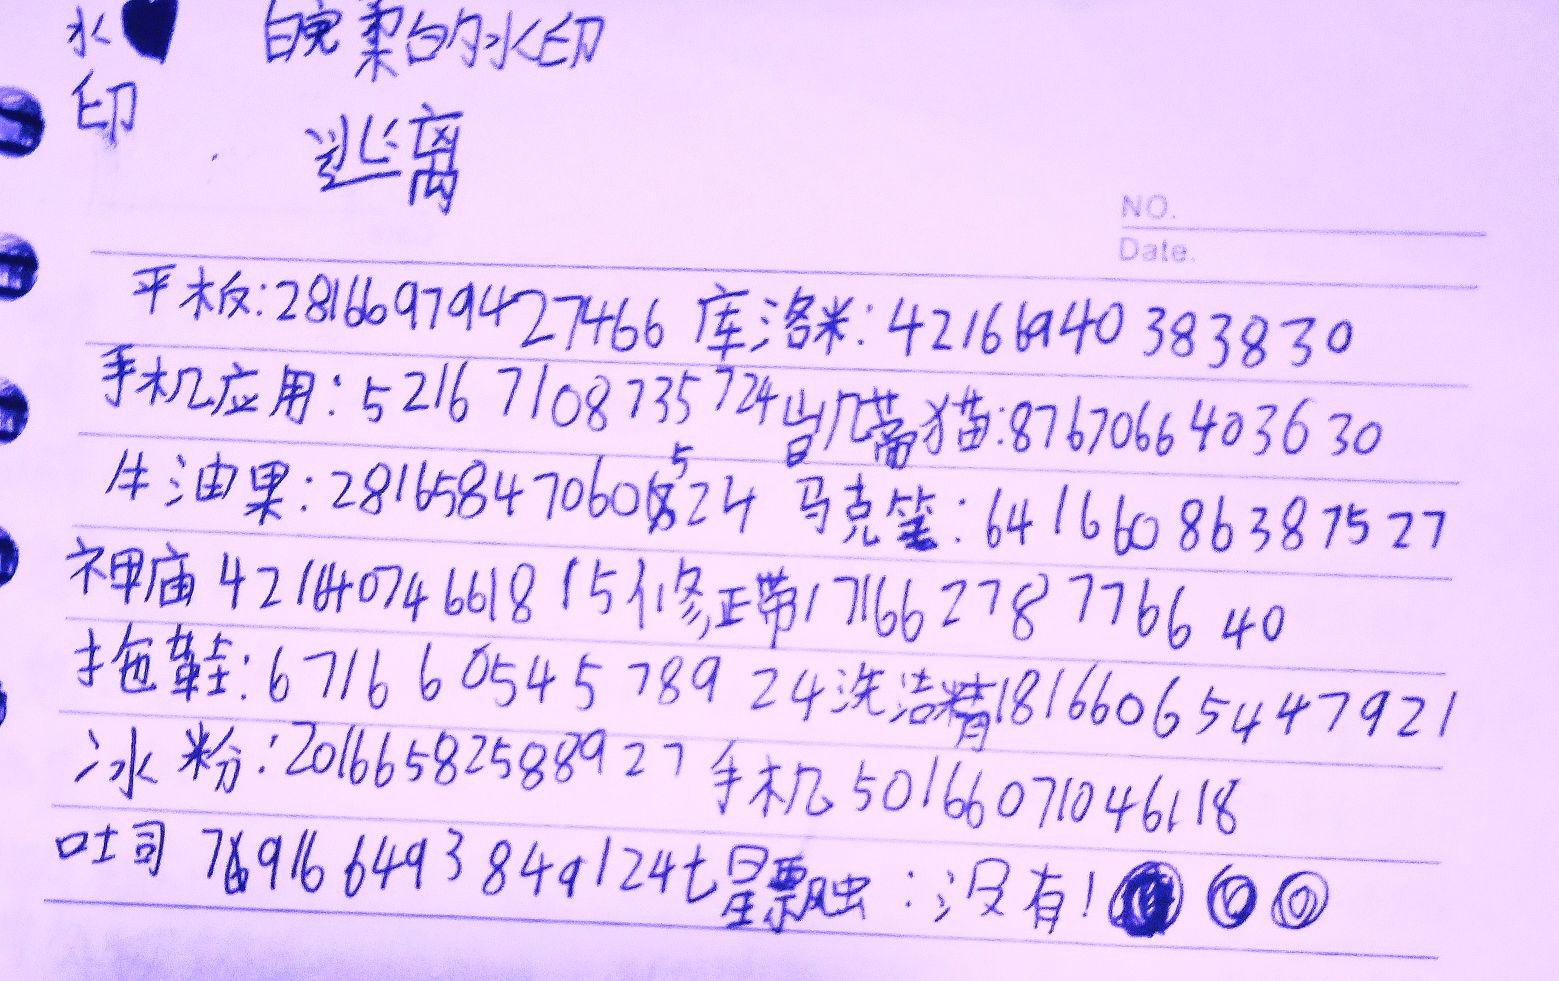 水 皖柔的水印
印
逃离
NO.
Date.
平板:2816697942​7466 库洛米:4216694​0383830
手机应用:5216 7108735724 凯蒂猫:876706640363​0
牛油果:281658470605​24 马克笔:64166086387527
神庙 421640746618 15 修正带17166278776640
拖鞋:6716 605457​89 24 洗洁精18166065447921
冰粉:2016658258​8927 手机 501660710461​18
吐司 769166493849124 七星瓢虫:没有!